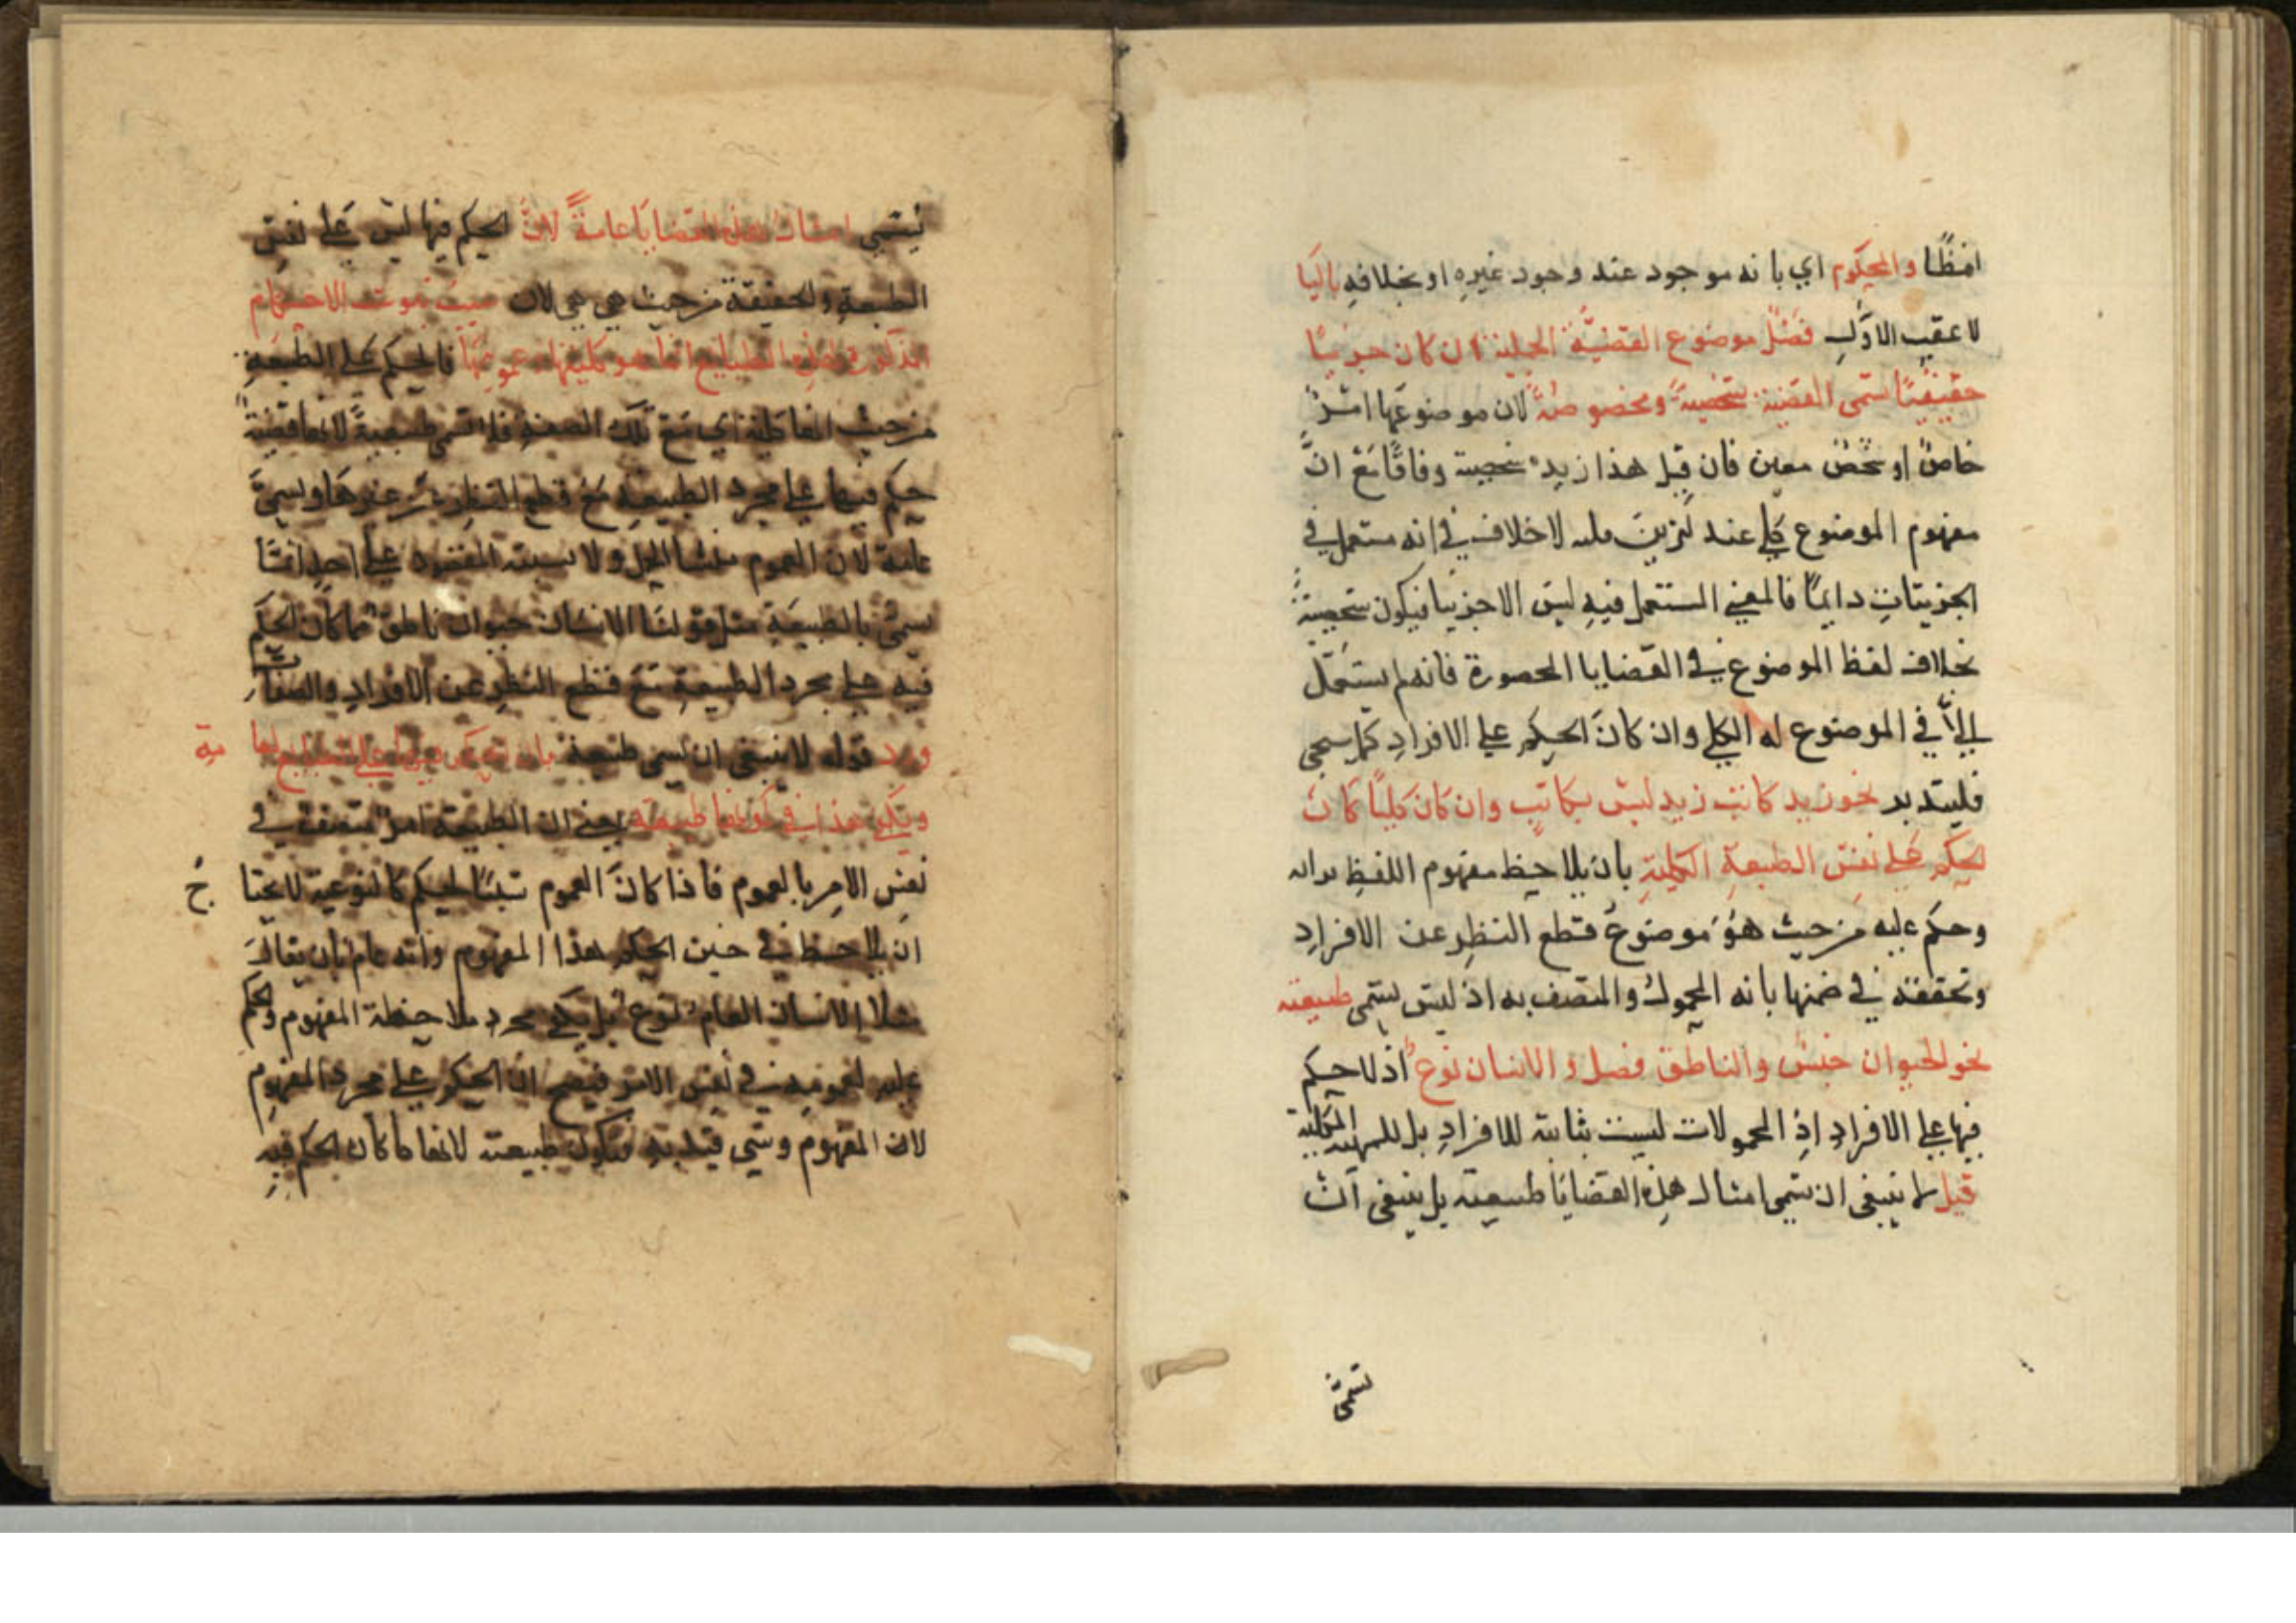 ايضًا والمحكوم اي بانه موجود عند وجود غيره او بخلافه باليا
لا عقيب الاول فصل موضوع القضية الحملية ان كان جزئيًا
حقيقيًا تسمى القضية شخصية ومخصوصة لان موضوعها امر
خاص او شخص معين فان قيل هذا زيد شخصية وفاقًا مع ان
مفهوم الموضوع كلي عند لا خلاف في انه مستعمل في
الجزئيات دايمًا فالمعني المستعمل فيه ليس الا جزئيا فيكون شخصية
بخلاف لفظ الموضوع في القضايا المحصورة فانه لم يستعمل
الا في الموضوع له الكلي وان كان الحكم علي الافراد كما سيجي
فليتدبر نحو زيد كاتب زيد ليس بكاتب وان كان كليًا كان
الحكم علي نفس الطبيعة الكلية بان يلاحظ مفهوم اللفظ
وحكم عليه من حيث هو موضوع قطع النظر عن الافراد
وتحققه في ضمنها بانه المحمول والمتصف به اذ ليس تسمى طبيعته
نحو الحيوان جنس والناطق فصل والانسان نوع اذ لا حكم
فيها علي الافراد اذ المحمولات ليست بثابتة للافراد بل للمهية الكلية
قيل لا ينبغي ان تسمى امثال هذه القضايا طبيعية بل ينبغي ان
تسمى
تسمى امثال هذه القضايا عامة لان الحكم فيها ليس علي نفس
الطبيعة والحقيقة من حيث هي هي لان ثبوت الاحكام
الطبايع انما هو كليتها عمومها فالحكم علي الطبيعة
من حيث انها اي مع تلك الصفة فلا تسمى طبيعية لانها قضية
حكم فيها علي مجرد الطبيعة مع قطع النظر عن وتسمى
عامة لان العموم منشا الحمل ولا
تسمى بالطبيعية مثل قولنا الانسان حيوان ناطق مما كان الحكم
فيه علي مجرد الطبيعة مع قطع النظر عن الافراد والصفات
ورد قوله لا ينبغي ان تسمى طبيعية بان الحكم فيها علي الطبايع
ويكفي هذا في كونها طبيعية يعني ان الطبيعة امر متصف في
نفس الامر بالعموم فاذا كان العموم للحكم كالنوعية لا يحتاج
ان يلاحظ في حين الحكم هذا المفهوم وانه عام بان يقال
مثلا الانسان العام نوع بل يكفي مجرد ملاحظة المفهوم والحكم
عليه لعموميته في نفس الامر فيصح ان الحكم علي مجرد المفهوم
لان المفهوم وشي قيد به فتكون طبيعته لانها ما كان الحكم فيه